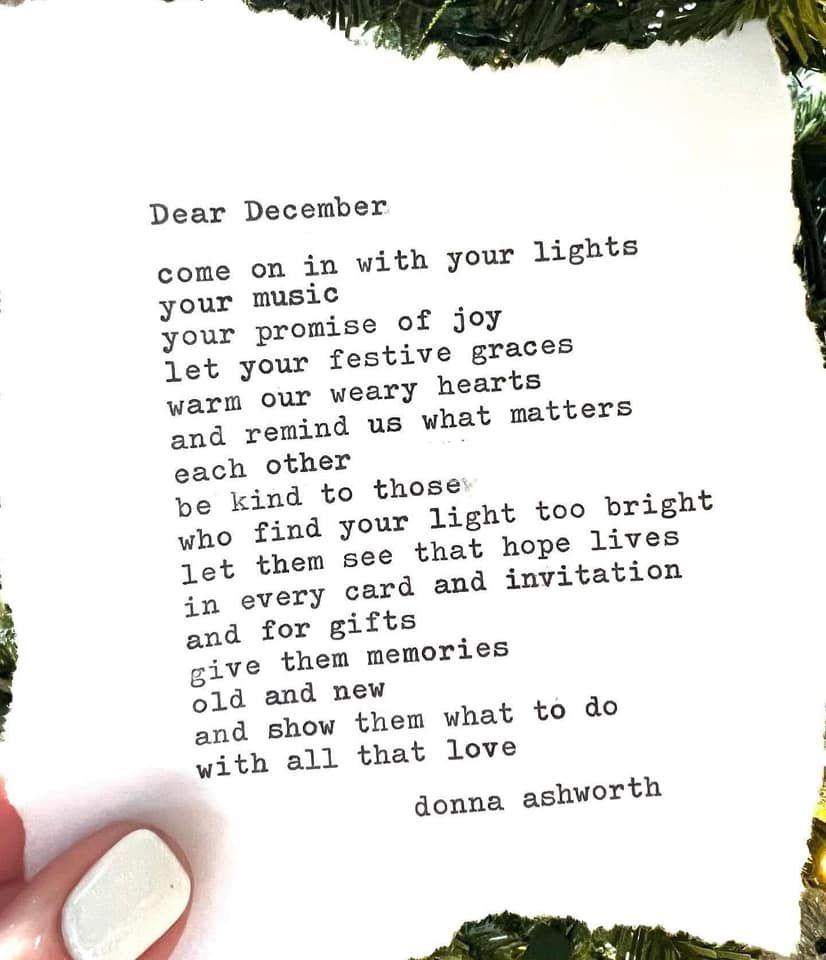 Dear December
come on in with your lights
your music
your promise of joy
let your festive graces
warm our weary hearts
and remind us what matters
each other
be kind to those
who find your light too bright
let them see that hope lives
in every card and invitation
and for gifts
give them memories
old and new
and show them what to do
with all that love
donna ashworth